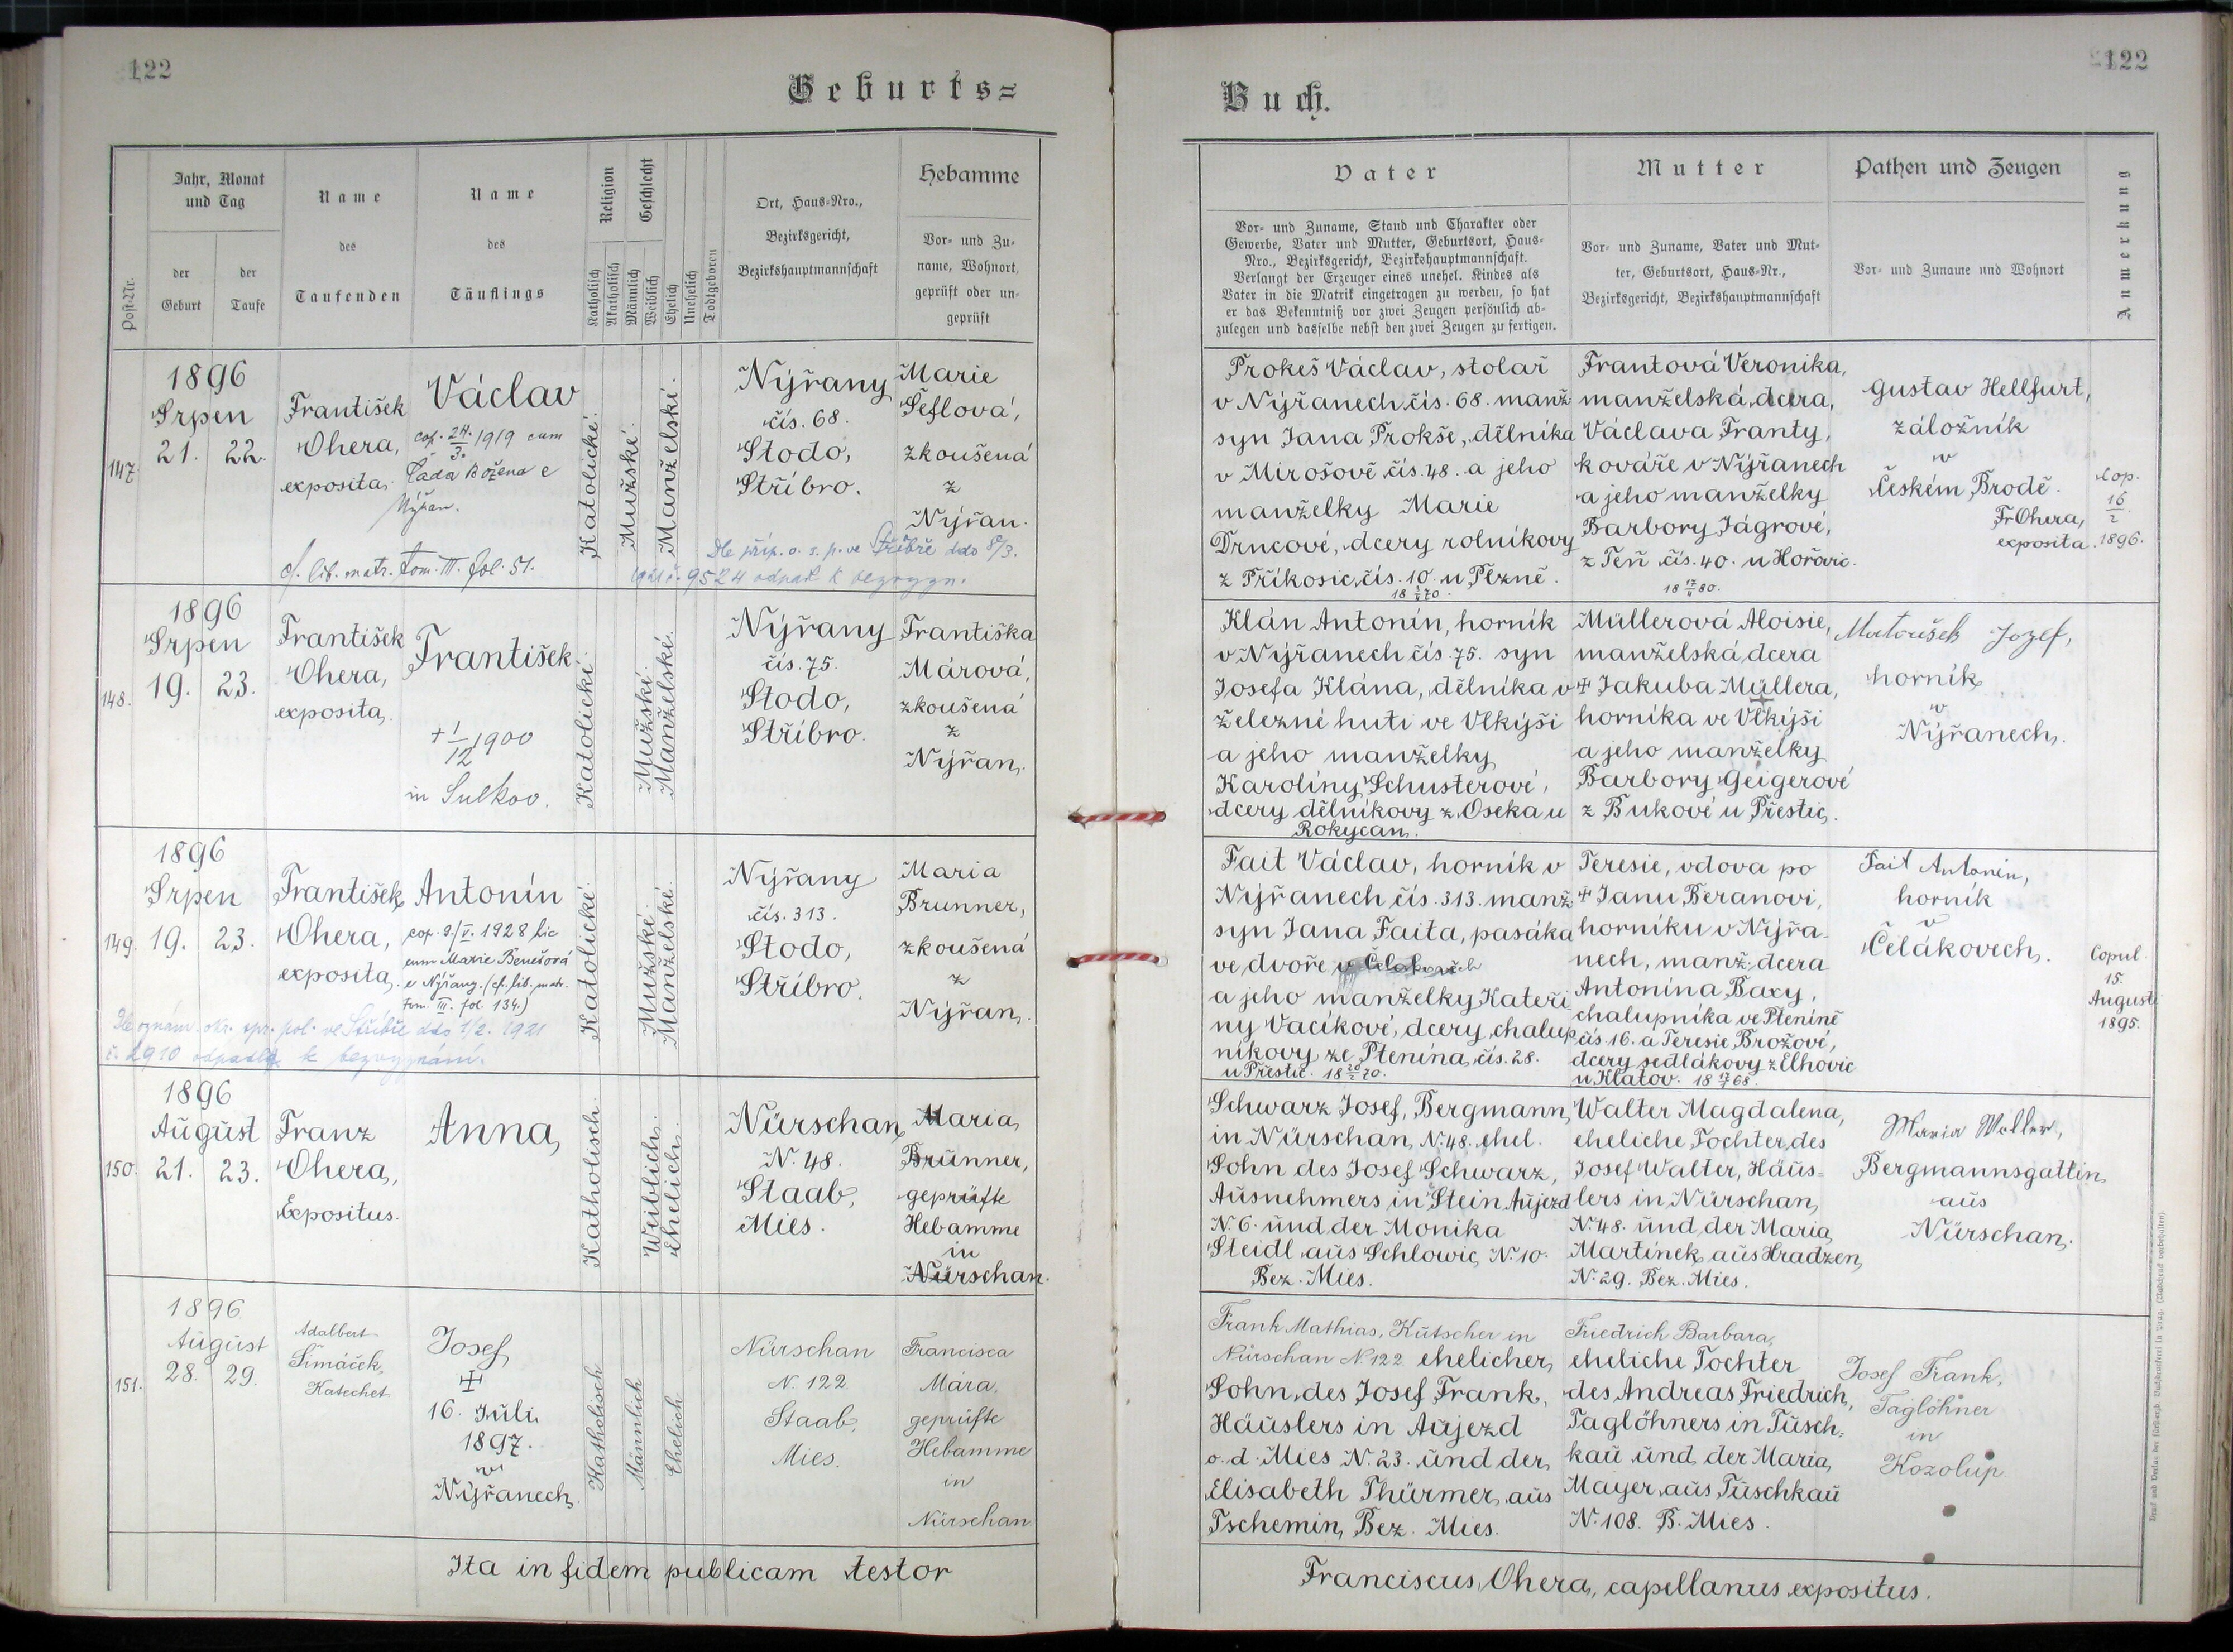 122
Geburts=
Post-Nr.
Jahr, Monat
und Tag
der
Geburt
der
Taufe
Name
des
Taufenden
Name
des
Täuflings
Religion
Katholisch
Akatholisch
Geschlecht
Männlich
Weiblich
Ehelich
Unehelich
Todtgeboren
Ort, Haus-Nro.,
Bezirksgericht,
Bezirkshauptmannschaft
Hebamme
Vor- und Zu-
name, Wohnort,
geprüft oder un-
geprüft
147.
1896
Srpen
21.
22.
František
Ohera,
exposita.
Václav
cop. 24./3. 1919 cum
Čada Božena e
Nýřan.
cf. lib. matr. tom. III. fol. 51.
Katolické.
Mužské.
Manželské.
Nýřany
čís. 68.
Stodo,
Stříbro.
Marie
Šeflová,
zkoušená
z
Nýřan.
Dle příp. o. s. p. ve Stříbře ddo 8/3.
1921 č. 9524 odpadl k bezvyzn.
148.
1896
Srpen
19.
23.
František
Ohera,
exposita.
František
+ 1/12 1900
in Sulkov.
Katolické.
Mužské.
Manželské.
Nýřany
čís. 75.
Stodo,
Stříbro.
Františka
Márová,
zkoušená
z
Nýřan.
149.
1896
Srpen
19.
23.
František
Ohera,
exposita.
Antonín
cop. 9./V. 1928 hic
cum Marie Benešová
e Nýřany. (cf. lib. matr.
tom. III. fol. 134.)
Dle oznám. okr. spr. pol. ve Stříbře ddo 1/2. 1921
č. 2910 odpadl k bezvyznání.
Katolické.
Mužské.
Manželské.
Nýřany
čís. 313.
Stodo,
Stříbro.
Maria
Brunner,
zkoušená
z
Nýřan.
150.
1896
August
21.
23.
Franz
Ohera,
Expositus.
Anna
Katholisch.
Weiblich.
Ehelich.
Nürschan
N. 48.
Staab,
Mies.
Maria
Brunner,
geprüfte
Hebamme
in
Nürschan.
151.
1896
August
28.
29.
Adalbert
Šimáček,
Katechet.
Josef
+
16. Juli
1897.
v
Nýřanech.
Katholisch
Männlich
Ehelich
Nürschan
N. 122
Staab,
Mies.
Francisca
Mára,
geprüfte
Hebamme
in
Nürschan.
Ita in fidem publicam testor
122
Buch.
Vater
Vor- und Zuname, Stand und Charakter oder
Gewerbe, Vater und Mutter, Geburtsort, Haus-
Nro., Bezirksgericht, Bezirkshauptmannschaft.
Verlangt der Erzeuger eines unehel. Kindes als
Vater in die Matrik eingetragen zu werden, so hat
er das Bekenntniß vor zwei Zeugen persönlich ab-
zulegen und dasselbe nebst den zwei Zeugen zu fertigen.
Mutter
Vor- und Zuname, Vater und Mut-
ter, Geburtsort, Haus-Nr.,
Bezirksgericht, Bezirkshauptmannschaft
Pathen und Zeugen
Vor- und Zuname und Wohnort
Anmerkung
Prokeš Václav, stolař
v Nýřanech čís. 68. manž.
syn Jana Prokše, dělníka
v Mirošově čís. 48. a jeho
manželky Marie
Drncové, dcery rolníkovy
z Příkosic, čís. 10. u Plzně.
Frantová Veronika,
manželská dcera,
Václava Franty,
kováře v Nýřanech
a jeho manželky
Barbory Jágrové,
z Teň čís. 40. u Hořovic.
18 17/4 80.
Gustav Hellfurt,
záložník
v
Českém Brodě.
Fr Ohera,
exposita.
Cop.
16
2
1896.
Klán Antonín, horník
v Nýřanech čís. 75. syn
Josefa Klána, dělníka v
železné huti ve Vlkýši
a jeho manželky
Karolíny Schusterové,
dcery dělníkovy z Oseka u
Rokycan.
Müllerová Aloisie,
manželská dcera
+ Jakuba Müllera,
horníka ve Vlkýši
a jeho manželky
Barbory Geigerové
z Bukové u Přestic.
Matoušek Jozef,
horník
v
Nýřanech.
Fait Václav, horník v
Nýřanech čís. 313. manž.
syn Jana Faita, pasáka
ve dvoře
a jeho manželky Kateři
ny Vacíkové, dcery chalup
níkovy ze Ptenína, čís. 28.
u Přestic. 18 20/2 70.
Teresie, vdova po
+ Janu Beranovi,
horníku v Nýřa-
nech, manž. dcera
Antonína Baxy,
chalupníka ve Pteníně
čís. 16. a Teresie Brožové,
dcery sedlákovy z Elhovic
u Klatov. 18 17/7 68.
Fait Antonín,
horník
v
Čelákovech.
Copul.
15.
August
1895.
Schwarz Josef, Bergmann,
in Nürschan, N. 48. ehel.
Sohn des Josef Schwarz,
Ausnehmers in Stein Aujezd
N. 6. und der Monika
Steidl aus Schlowic, N. 10.
Bez. Mies.
Walter Magdalena,
eheliche Tochter des
Josef Walter, Häus-
lers in Nürschan,
N. 48. und der Maria
Martinek, aus Hradzen,
N. 29. Bez. Mies.
Maria Müller,
Bergmannsgattin
aus
Nürschan.
Frank Mathias, Kutscher in
Nürschan N. 122 ehelicher
Sohn des Josef Frank,
Häuslers in Aujezd
o. d. Mies N. 23. und der
Elisabeth Thürmer, aus
Tschemin, Bez. Mies.
Friedrich Barbara,
eheliche Tochter
des Andreas Friedrich,
Taglöhners in Tusch-
kau und der Maria
Mayer aus Tuschkau
N. 108. B. Mies.
Josef Frank,
Taglöhner
in
Kozolup.
Franciscus Ohera, capellanus expositus.